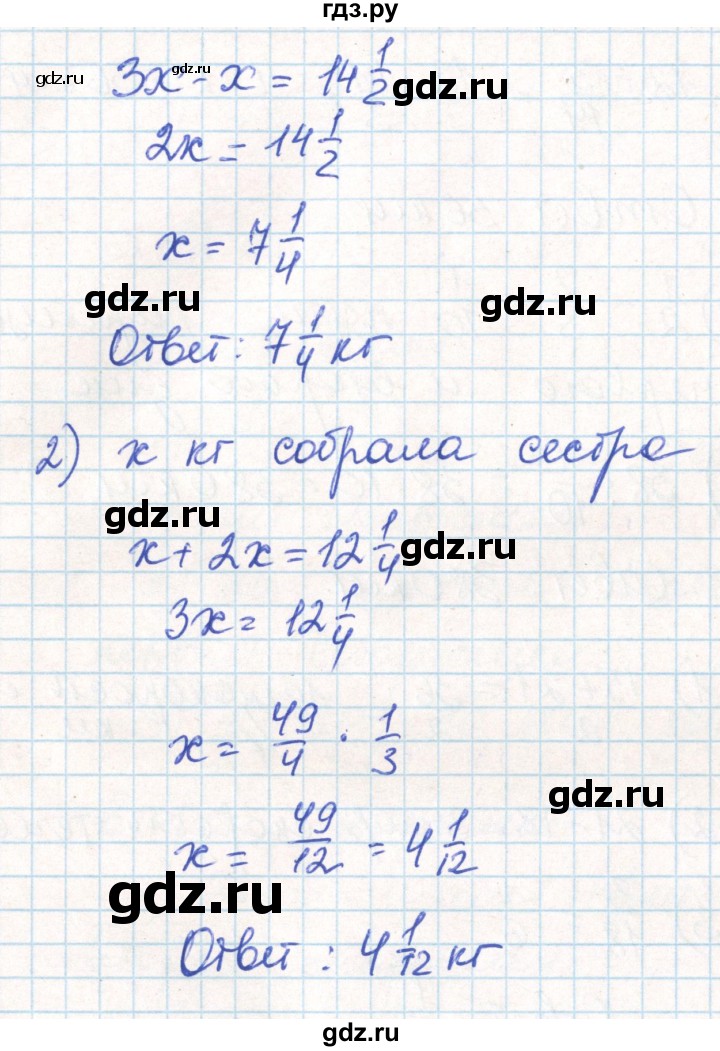 гдз.ру
gdz.ru gdz.ru
3x - x = 14 1/2 gdz.ru
2x = 14 1/2
x = 7 1/4
gdz.ru gdz.ru
Ответ: 7 1/4 кг
2) x кг собрала сестра
gdz.ru
x + 2x = 12 1/4 gdz.ru
3x = 12 1/4
x = 49/4 · 1/3
gdz.ru
x = 49/12 = 4 1/12
gdz.ru
Ответ: 4 1/12 кг
gdz.ru